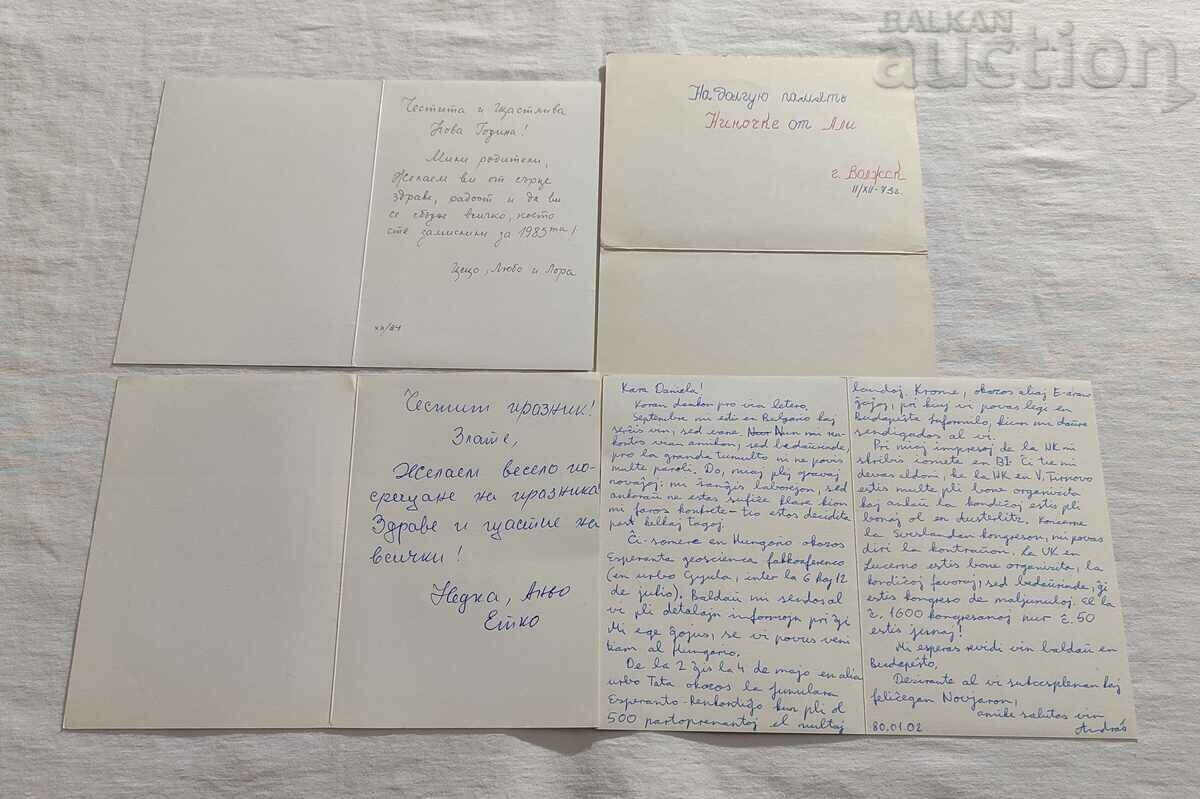 BALKAN
auction
Честита и щастлива
Нова Година!
Мили родители,
Желаем ви от сърце
здраве, радост и да ви
се сбъдне всичко, което
сте замислили за 1985та!
Цецо, Любо и Лора
XII/84
На долгую память
Ниночке от Али
г. Волжск
11/XII-73г.
Честит празник!
Злате,
Желаем весело по-
срещане на празника!
Здраве и щастие на
всички!
Недка, Аньо
Етко
Kara Daniela!
Koran dankon pro via letero.
Septembre mi estis en Bulgario kaj
serĉis vin, sed vane. Nun mi ren-
kontis vian amikon, sed bedaŭrinde,
pro la granda tumulto ni ne povis
multe paroli. Do, miaj plej gravaj
novaĵoj: mi ŝanĝis laborejon, sed
ankoraŭ ne estas sufiĉe klare kion
mi faros konkrete - tio estos decidita
post kelkaj tagoj.
Ĉi-somere en Hungario okazos
Esperanta geoscienca fakkonferenco
(en urbo Gyula, inter la 6 kaj 12
de julio). Baldaŭ mi sendos al
vi pli detalajn informojn pri ĝi.
Mi ege ĝojus, se vi povus veni
tiam al Hungario.
De la 2 ĝis la 4. de majo en alia
urbo Tata okazos la junulara
Esperanto-Renkontiĝo kun pli ol
500 partoprenantoj el multaj
landoj. Krome, okazos aliaj E-aran-
ĝaĵoj, pri kiuj vi povas legi en
Budapeŝta Informilo, kiun mi daŭre
sendigados al vi.
Pri miaj impresoj de la IJK mi
skribis iomete en BI. Ĉi tie mi
devas aldoni, ke la IJK en V. Tirnovo
estis multe pli bone organizita
kaj ankaŭ la kondiĉoj estis pli
bonaj ol en Austerlitz. Koncerne
la Svislandan kongreson, mi povas
diri la kontraŭon. La UK en
Lucerno estis bone organizita, la
kondiĉoj favoraj, sed bedaŭrinde, ĝi
estis kongreso de maljunuloj. El la
ĉ. 1600 kongresanoj nur ĉ. 50
estis junaj!
Mi esperas revidi vin baldaŭ en
Budapeŝto.
Dezirante al vi sukcesplenan kaj
feliĉegan Novjaron,
amike salutas vin
80.01.02 András